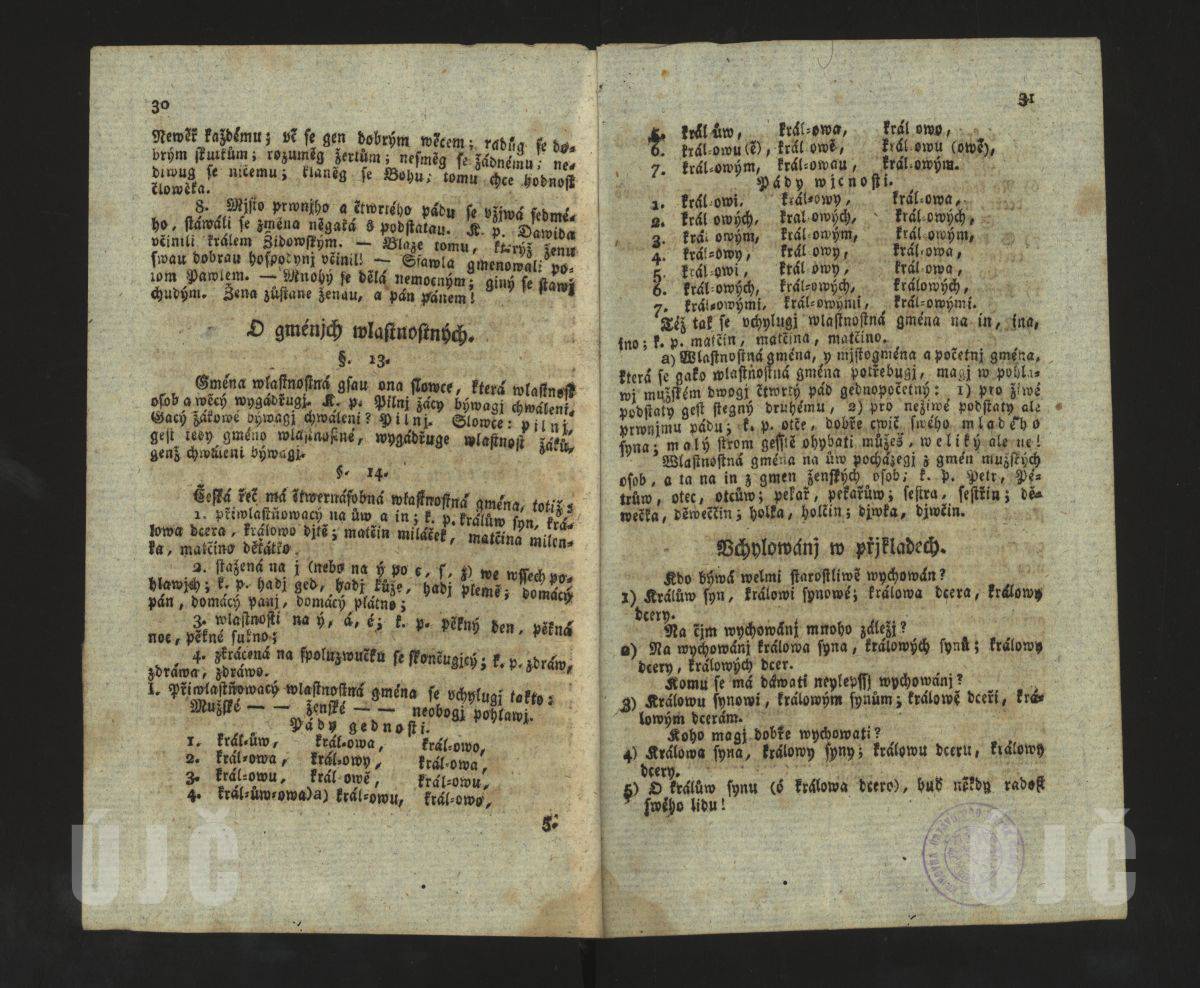 30
Newěř každému; vč se gen dobrým wěcem; radůg se do=
brým skutkům; rozuměg žertům; nesměg se žádnému; ne=
diwug se ničemu; klaněg se Bohu; tomu chce hodnost
člowěka.
8. Mjsto prwnjho a čtwrtého pádu se vžjwá sedmé=
ho, stáwáli se změna něgaká s podstatau. K. p. Dawida
včinili králem Židowským. — Blaze tomu, kterýž ženu
swau dobrau hospodynj včinil! — Ssawla gmenowali po=
tom Pawlem. — Mnohý se dělá nemocným; giný se stawj
chudým. Žena zůstane ženau, a pán pánem!
O gménjch wlastnostných.
§. 13.
Gména wlastnostná gsau ona slowce, která wlastnost
osob a wěcý wygádřugj. K. p. Pilnj žácy býwagj chwáleni.
Gacý žákowé býwagj chwáleni? Pilnj. Slowce: pilnj,
gest tedy gméno wlastnostné, wygádřuge wlastnost žáků,
genž chwáleni býwagj.
§. 14.
Česká řeč má čtwernásobná wlastnostná gména, totiž:
1. přiwlastňowacý na ůw a in; k. p. králůw syn, krá=
lowa dcera, králowo djtě; matčin miláček, matčina milen=
ka, matčino děťátko.
2. stažená na j (nebo na ý po c, s, z) we wssech po=
hlawjch; k. p. hadj ged, hadj kůže, hadj plemě; domácý
pán, domácý panj, domácý plátno;
3. wlastnosti na ý, á, é; k. p. pěkný den, pěkná
noc, pěkné sukno;
4. zkrácená na spoluzwučku se skončugjcý; k. p. zdráw,
zdráwa, zdráwo.
1. Přiwlastňowacý wlastnostná gména se vchylugj takto:
Mužské — — ženské — — neobogj pohlawj.
Pády gednosti.
1. král=ůw, král=owa, král=owo,
2. král=owa, král=owy, král=owa,
3. král=owu, král owě, král=owu,
4. král=ůw=owa)a) král=owu, král=owo,
5.
31
5. král ůw, král=owa, král owo,
6. král=owu (ě), král owě, král owu (owě),
7. král=owým, král=owau, král=owým.
Pády wjcnosti.
1. král=owi, král=owy, král=owa,
2. král owých, král owých, král=owých,
3. král owým, král=owým, král owým,
4. král=owy, král owy, král=owa,
5. král=owi, král owy, král=owa,
6. král=owých, král=owých, králowých,
7. král=owými, král=owými, král=owými.
Též tak se vchylugj wlastnostná gména na in, ina,
ino; k. p. matčin, matčina, matčino.
a) Wlastnostná gména, y mjstogména a početnj gména,
která se gako wlastnostná gména potřebugj, magj w pohla=
wj mužském dwogj čtwrtý pád gednopočetný: 1) pro žiwé
podstaty gest stegný druhému, 2) pro nežiwé podstaty ale
prwnjmu pádu; k. p. otče, dobře cwič swého mladého
syna; malý strom gesstě ohybati můžeš, weliký ale ne!
Wlastnostná gména na ůw pocházegj z gmén mužských
osob, a ta na in z gmen ženských osob; k. p. Petr, Pe=
trůw, otec, otcůw; pekař, pekařůw; sestra, sestřin; dě=
wečka, děweččin; holka, holčin; djwka, djwčin.
Vchylowánj w přjkladech.
Kdo býwá welmi starostliwě wychowán?
1) Králůw syn, králowi synowé; králowa dcera, králowy
dcery.
Na čjm wychowánj mnoho záležj?
2) Na wychowánj králowa syna, králowých synů; králowy
dcery, králowých dcer.
Komu se má dáwati neylepssj wychowánj?
3) Králowu synowi, králowým synům; králowě dceři, krá=
lowým dcerám.
Koho magj dobře wychowati?
4) Králowa syna, králowy syny; králowu dceru, králowy
dcery.
5) O králůw synu (ó králowa dcero), buď někdy radost
swého lidu!
ÚJČ
ÚJČ